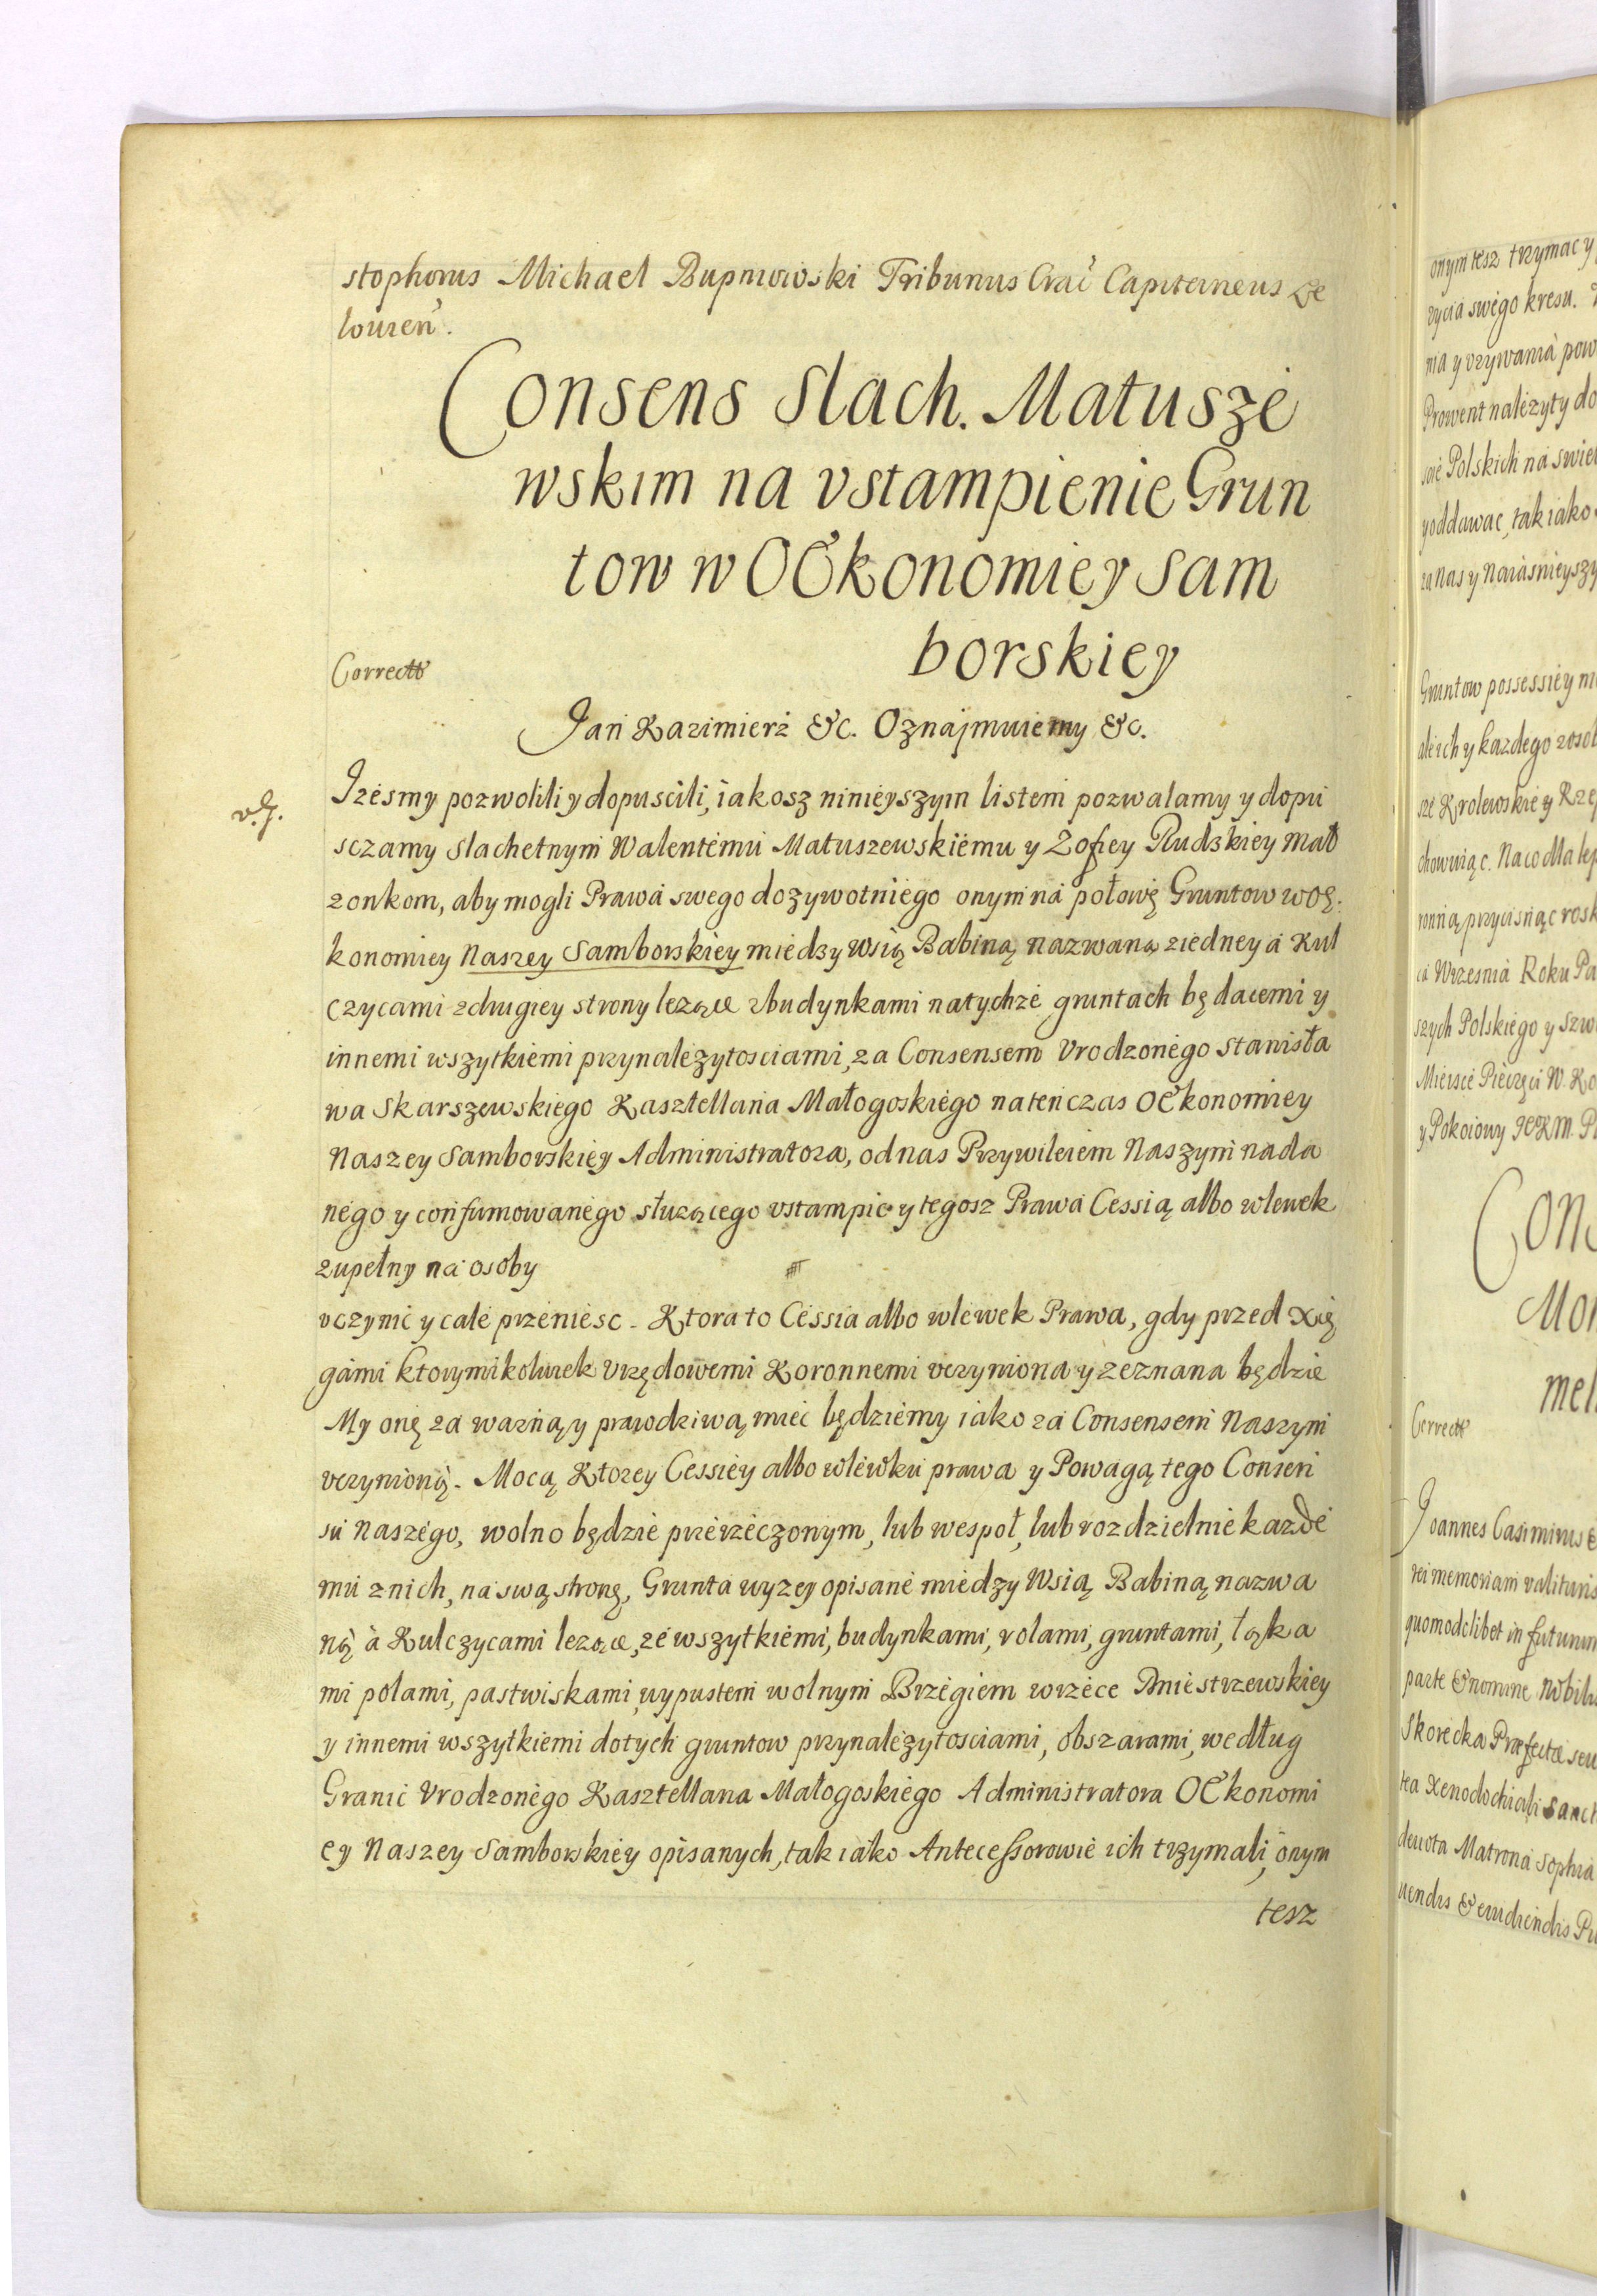 stophorus Michael Rupniowski Tribunus Crac̃ Capitaneus Ze
louien̄.
Consens Slach. Matusze
wskim na vstampienie Grun
tow w OEkonomiey Sam
borskiey
Correctt
Jan Kazimierz &c. Oznajmuiemy &c.
Jzesmy pozwolili y dopuscili, iakosz ninieyszym listem pozwalamy y dopu
sczamy Slachetnym Walentemu Matuszewskiemu y Zofiey Rudzkiey Mał
zonkom, aby mogli Prawa swego dozywotniego onym na połowę Gruntow w OE
konomiey Naszey Samborskiey miedzy wsią Babiną nazwaną ziedney a Kul
czycami zdrugiey strony lezące zbudynkami natychze gruntach będacemi y
innemi wszytkiemi przynalezytosciami, za Consensem Vrodzonego Stanisła
wa Skarszewskiego Kasztellana Małogoskiego natenczas OEkonomiey
Naszey Samborskiey Administratora, odnas Przywileiem Naszym nada
nego y confirmowanego słuzącego vstampic y tegosz Prawa Cessią albo wlewek
zupełny na osoby
vczynic y cale przeniesc. Ktora to Cessia albo wlewek Prawa, gdy przed Xię
gami ktorymikolwiek Vrzędowemi Koronnemi vczyniona y zeznana będzie
My onę za wazną y prawdziwą miec będziemy iako za Consensem Naszym
vczynioną. Mocą Ktorey Cessiey albo wlewku prawa y Powagą tego Consen
su Naszego, wolno będzie przerzeczonym, lub wespoł, lub rozdzielnie kazde
mu znich, na swą stronę, Grunta wyzey opisane miedzy Wsią Babiną nazwa
ną a Kulczycami lezące, ze wszytkiemi, budynkami, rolami, gruntami, łąka
mi polami, pastwiskami, wypustem wolnym Brzegiem wrzece Dniestrzewskiey
y innemi wszytkiemi dotych gruntow przynalezytosciami, obszarami, według
Granic Vrodzonego Kasztellana Małogoskiego Administratora OEkonomi
ey Naszey Samborskiey opisanych, tak iako Antecessorowie ich trzymali, onym
tesz
onym tesz trzymac y
zycia swego kresu.
nia y vzywania pow
Prowent nalezyty do
Polskich na swie
y oddawac, tak iako
za Nas y Naiasnieyszy
Gruntow possessiey
ale ich y kazdego zosob
sze Krolewskiey Rze
chowuiąc. Na co dla lep
ronną przycisnąc rosk
ca Wrzesnia Roku Pa
szych Polskiego y Szw
Mieisce Pieczęci W. Ko
y Pokoiowy JKM. P
Con
Mon
mel
Correctt
Joannes Casimirus
rei memoriam valituris
quomodolibet in futurum
parte & nomine Nobilis
Skorecka Præfectæ seu
tea Xenodochiali Sanct
deuota Matrona Sophia
uendis & erudiendis Pu